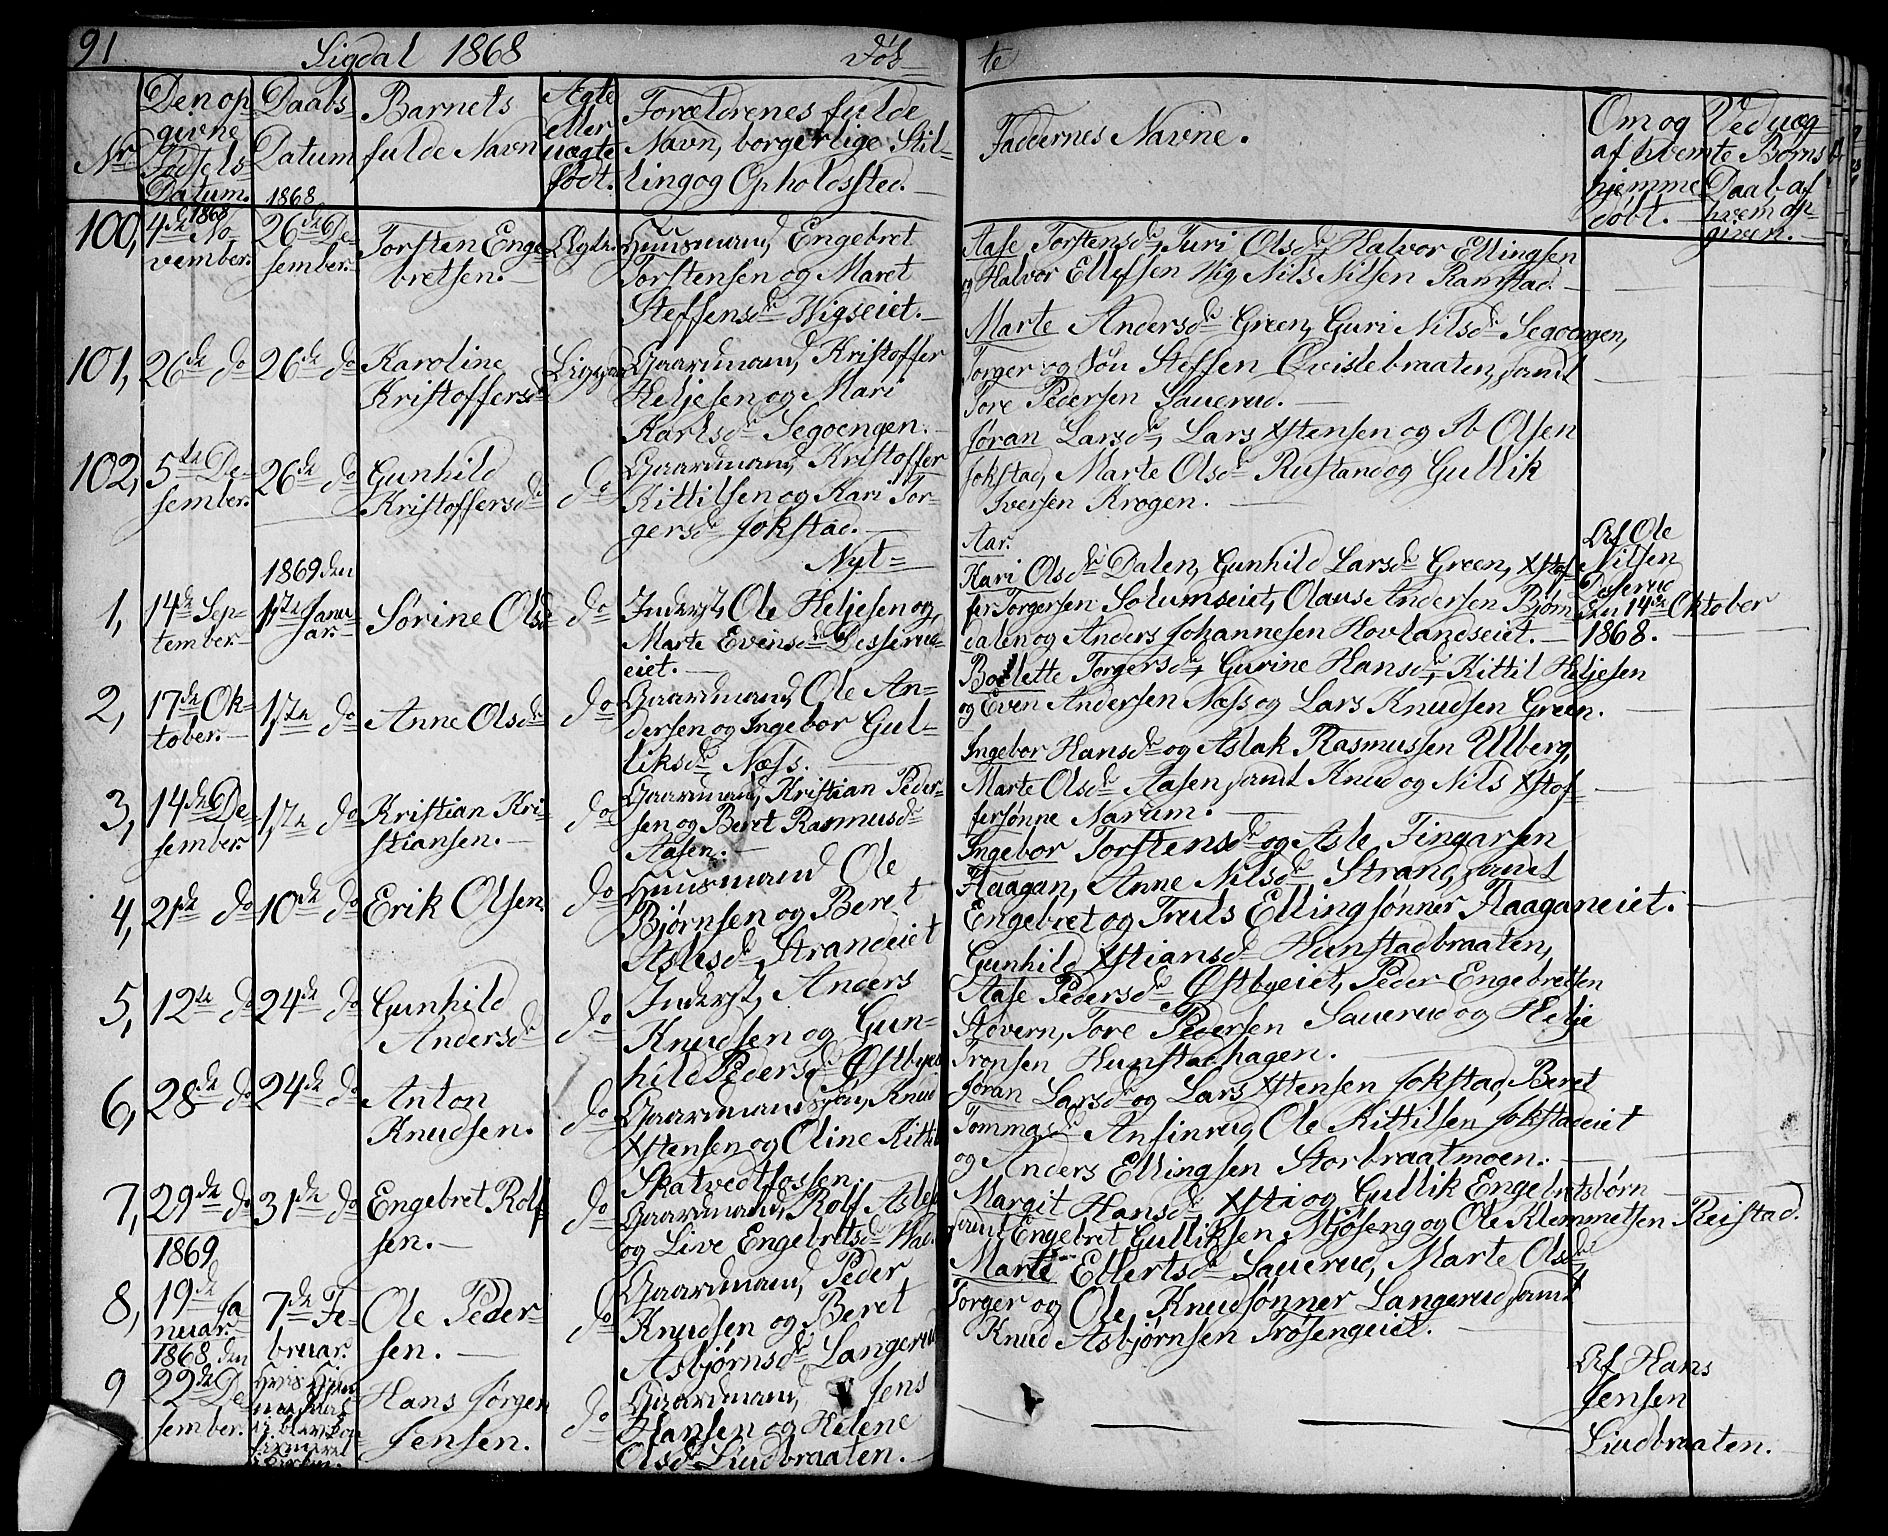 91 Sigdal 1868 Føb- te
Nr.
Den op-
givne
Fødsels
Datum.
Daabs
Datum
1868
Barnets
fulde Navn
Ægte
eller
uægte
født.
Forældrenes fulde
Navn, borgerlige Stil-
ling og Opholdssted.
Faddernes Navne.
Om og
af hvem
hjemme
døbt.
Ved uæg-
te Børns
Daab af
hvem op-
given.
100, 4de No-
vember.
1868
26de De-
sember.
Torsten Enge-
bretsen.
Ægte.
Huusmand, Engebret
Torstensen og Maret
Steffensdr Wigseiet.
Aase Torstensdr, Turi Olsdr, Halvor Ellingsen
og Halvor Ellefsen Wig, Nils Nilsen Ramstad.
101, 26de do 26de do
Karoline
Kristoffersdr
Gaardmand, Kristoffer
Heljesen og Mari
Karlsdr Segoengen.
Marte Andersdr Green, Guri Nilsdr Segoengen,
Torger og Jøn Steffen Qvislebraaten, samt
Tore Pedersen Sauerud.
102, 5te De-
sember.
26de do
Gunhild
Kristoffersdr
do
Gaardmand, Kristoffer
Kittilsen og Kari Tor-
gersdr Jokstad.
Jøran Larsdr, Lars Xstensen og Ib Olsen
Jokstad, Marte Olsdr Rustand og Gullik
Iversen Krogen.
Nyt= Aar.
1869 den
1, 14de Sep-
tember.
1ste Janu-
ar.
Sørine Olsdr
do
Inderst, Ole Heljesen og
Marte Evensdr Desserud-
eiet.
Kari Olsdr Dalen, Gunhild Larsdr Green, Xstof-
fer Torgersen Solumseiet, Olaus Andersen Bjørn-
dalen og Anders Johannesen Hovlandseiet.
Af Ole
Nilsen
Desserud
den 14de Oktober
1868.
2, 17de Ok-
tober.
1ste do
Anne Olsdr
do
Gaardmand, Ole An-
dersen og Ingebor Gul-
liksdr Næss.
Bollette Torgersdr, Gurine Hansdr, Kittil Heljesen
og Even Andersen Næss og Lars Knudsen Green.
3, 14de De-
sember.
1ste do
Kristian Kri-
stiansen.
do
Gaardmand, Kristian Peder-
sen og Beret Rasmusdr
Aasen.
Ingebor Hansdr og Aslak Rasmussen Ulberg,
Marte Olsdr Aasen samt Knud og Nils Xstof-
fersønne Narum.
4, 21de do 10de do
Erik Olsen
do
Huusmand Ole
Bjørnsen og Beret
Aslesdr Strandeiet
Ingebor Torstensdr og Asle Fingarsen
Haagan, Anne Nilsdr Strand, samt
Engebret og Truls Ellingsønner Haaganeiet.
5, 12te do 24de do
Gunhild
Andersdr
do
Inderst, Anders
Knudsen og Gun-
hild Pedersdr Østbyei
Gunhild Xstiansdr Hunstadbraaten,
Aase Pedersdr Østbyeiet, Peder Engebretsen
Støvern, Tore Pedersen Sauerud og Helje
Tronsen Hunstadhagen.
6, 28de do 24de do
Anton
Knudsen.
do
Gaardmandssøn, Knud
Xstensen og Oline Kittils
Skatvedtfossen.
Jøran Larsdr og Lars Xstensen Jokstad, Beret
Tommasdr Ansinrud, Ole Kittilsen Jokstadeiet
og Anders Ellingsen Storbraatmoen.
7, 29de do 31de do
Engebret Rolf-
sen.
do
Gaardmand, Rolf Aslefs
og Live Engebretsdr
Margit Hansdr Xsti og Gullik Engebretsbørn
samt Engebret Gulliksen Mjøseng og Ole Klemmetsen Reistad.
1869
8, 19de Ja-
nuar.
7de Fe-
bruar.
Ole Peder-
sen.
do
Gaardmand, Peder
Knudsen og Beret
Asbjørnsdr Langerud
Marte Ellertsdr Sauerud, Marte Olsdr
Torger og Ole Knudsønner Langerud, samt
Knud Asbjørnsen Frøsengeiet.
1868 den
9 22de De-
sember.
Hans Jørgen
Jensen.
do
Gaardmand, Jens
Hansen og Helene
Olsdr Liudbraaten.
Af Hans
Jensen
Liudbraaten.